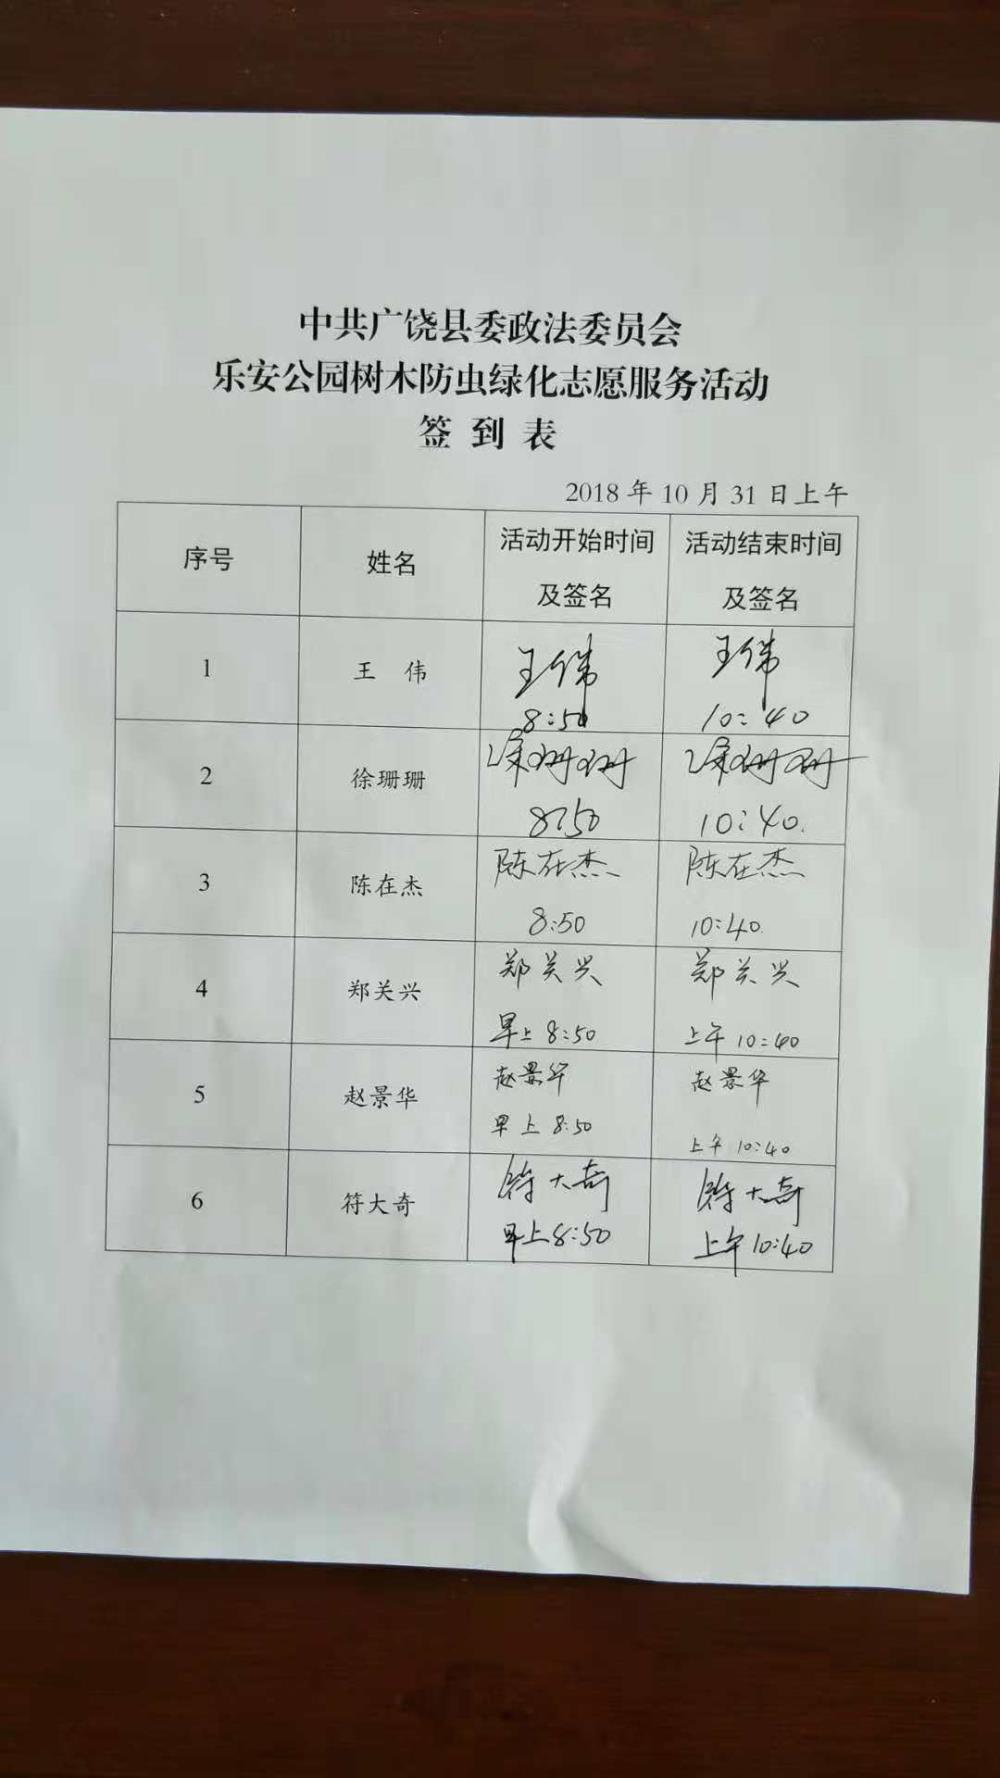 中共广饶县委政法委员会
乐安公园树木防虫绿化志愿服务活动
签 到 表
2018 年 10 月 31 日上午
序号 姓名 活动开始时间及签名 活动结束时间及签名
1 王 伟 王伟 王伟
8:50 10:40
2 徐珊珊 徐珊珊 徐珊珊
8:50 10:40.
3 陈在杰 陈在杰 陈在杰
8:50 10:40.
4 郑关兴 郑关兴 郑关兴
早上 8:50 上午 10:40
5 赵景华 赵景华 赵景华
早上 8:50 上午 10:40
6 符大奇 符大奇 符大奇
早上 8:50 上午 10:40